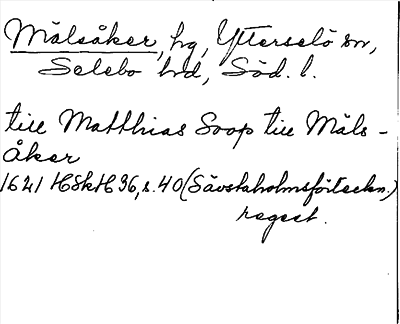 Målsåker, hg, Ytterselö sn,
Selebo hd, Söd. l.
till Matthias Soop till Måls-
åker
1621 HSkH 36, s. 40 (Sävstaholmsförteckn.)
regest.